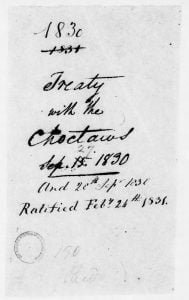 1830
1831
Treaty
with the
Choctaws
27
Sep. 15. 1830
And 20th Sepr 1830
Ratified Feby. 24th 1831.